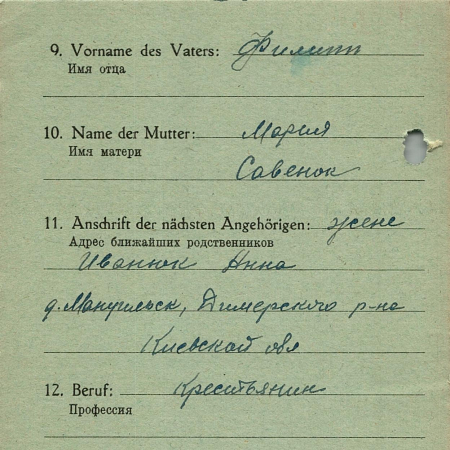 9. Vorname des Vaters: Филипп
Имя отца
10. Name der Mutter: Мария
Имя матери
Савенок
11. Anschrift der nächsten Angehörigen: жене
Адрес ближайших родственников
Иванюк Анна
д. Мануильск, Димерского р-на
Киевской обл
12. Beruf: Крестьянин
Профессия